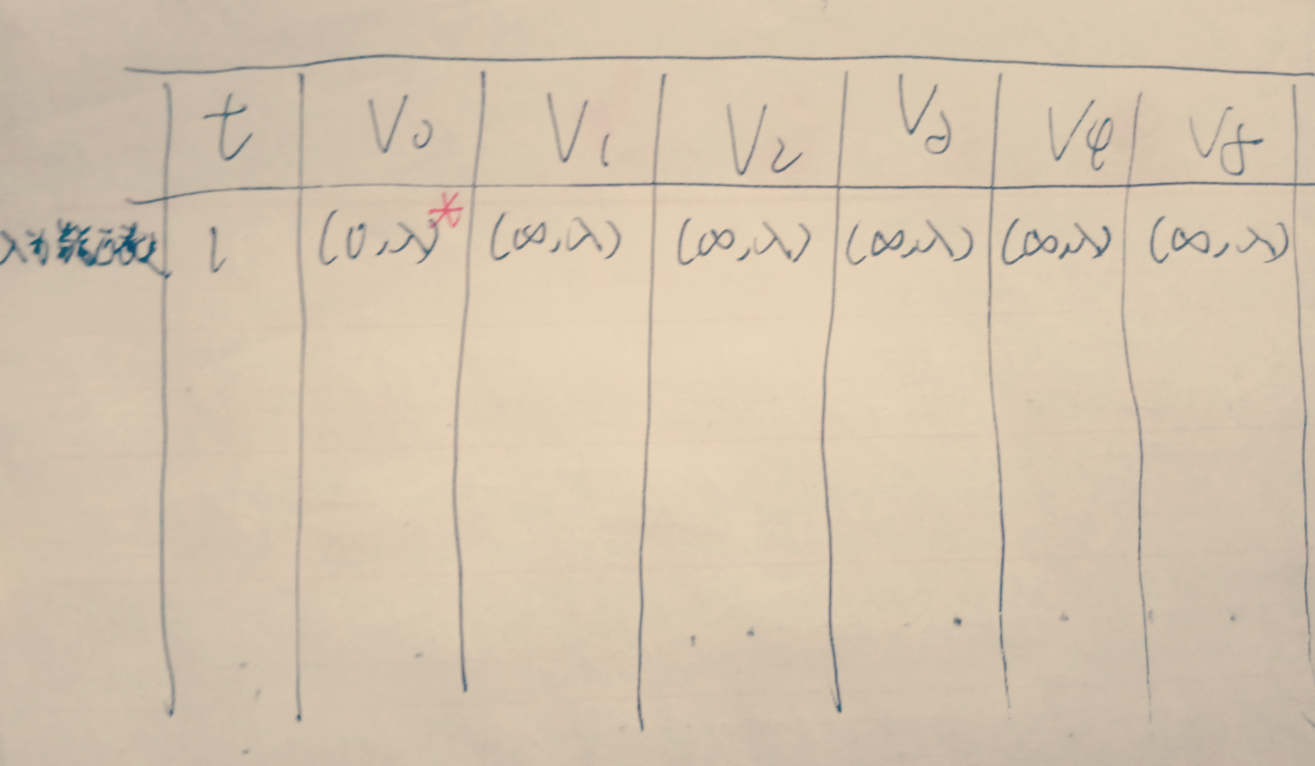 t V₀ V₁ V₂ V₃ V₄ V₅
λ为 1 (0,λ)* (∞,λ) (∞,λ) (∞,λ) (∞,λ) (∞,λ)